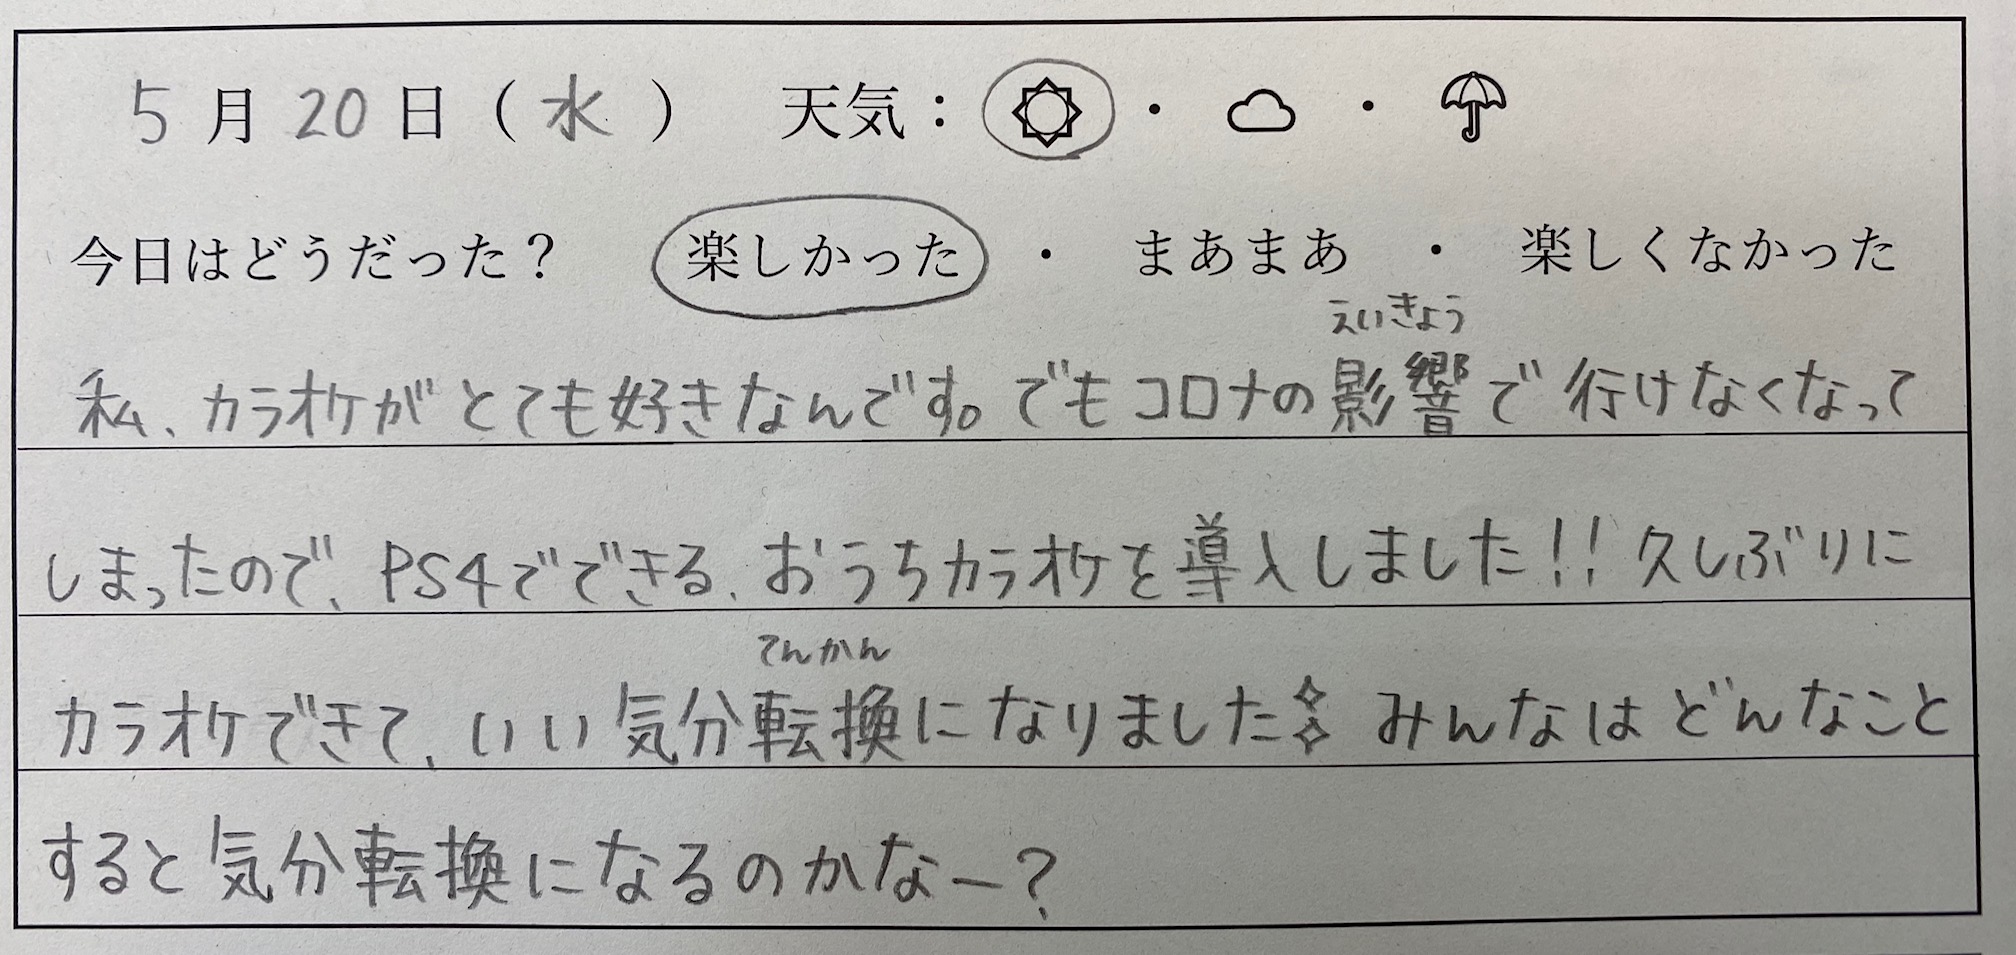 5月20日（水）　天気：☼・☁・☂
今日はどうだった？　楽しかった・まあまあ・楽しくなかった
えいきょう
私、カラオケがとても好きなんです。でもコロナの影響で行けなくなって
しまったので、PS4でできる、おうちカラオケを導入しました!!久しぶりに
てんかん
カラオケできて、いい気分転換になりました✧✧みんなはどんなこと
すると気分転換になるのかなー?